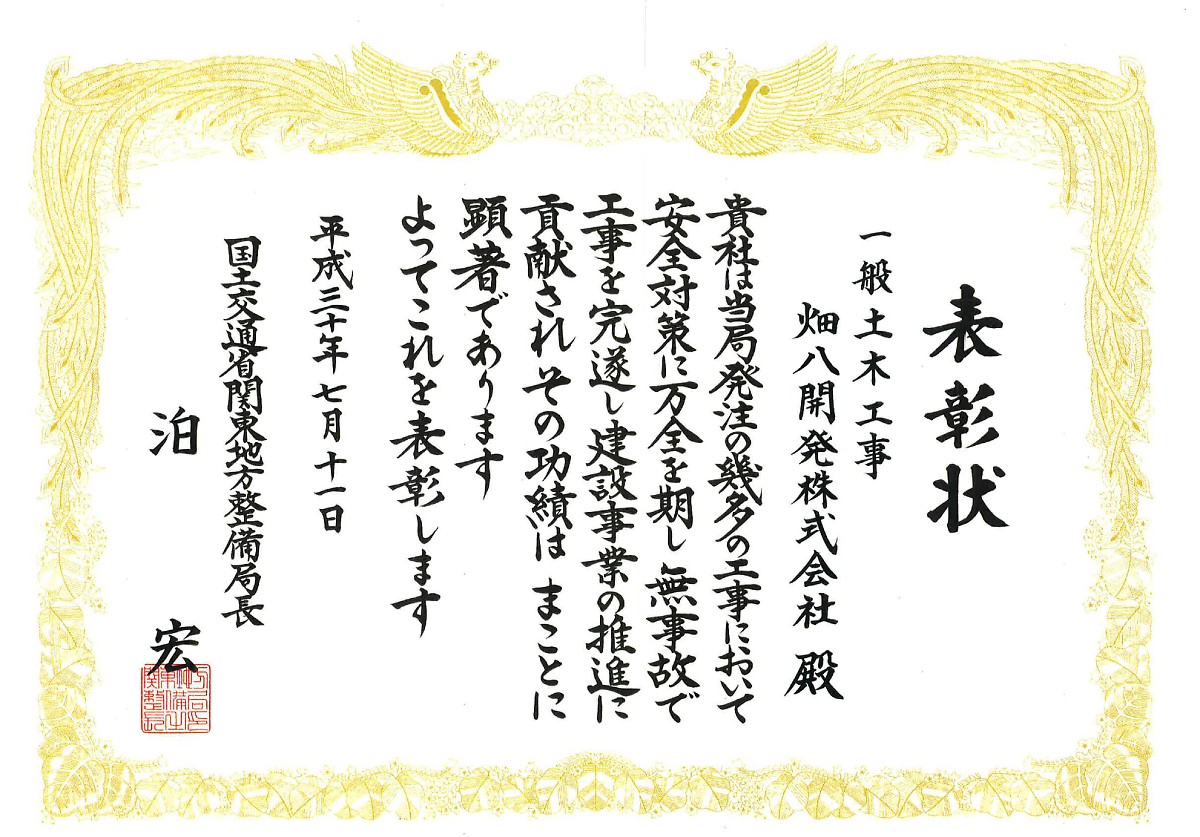 表彰状
一般土木工事
畑八開発株式会社 殿
貴社は当局発注の幾多の工事において
安全対策に万全を期し 無事故で
工事を完遂し建設事業の推進に
貢献されその功績は まことに
顕著であります
よってこれを表彰します
平成三十年七月十一日
国土交通省関東地方整備局長
泊 宏